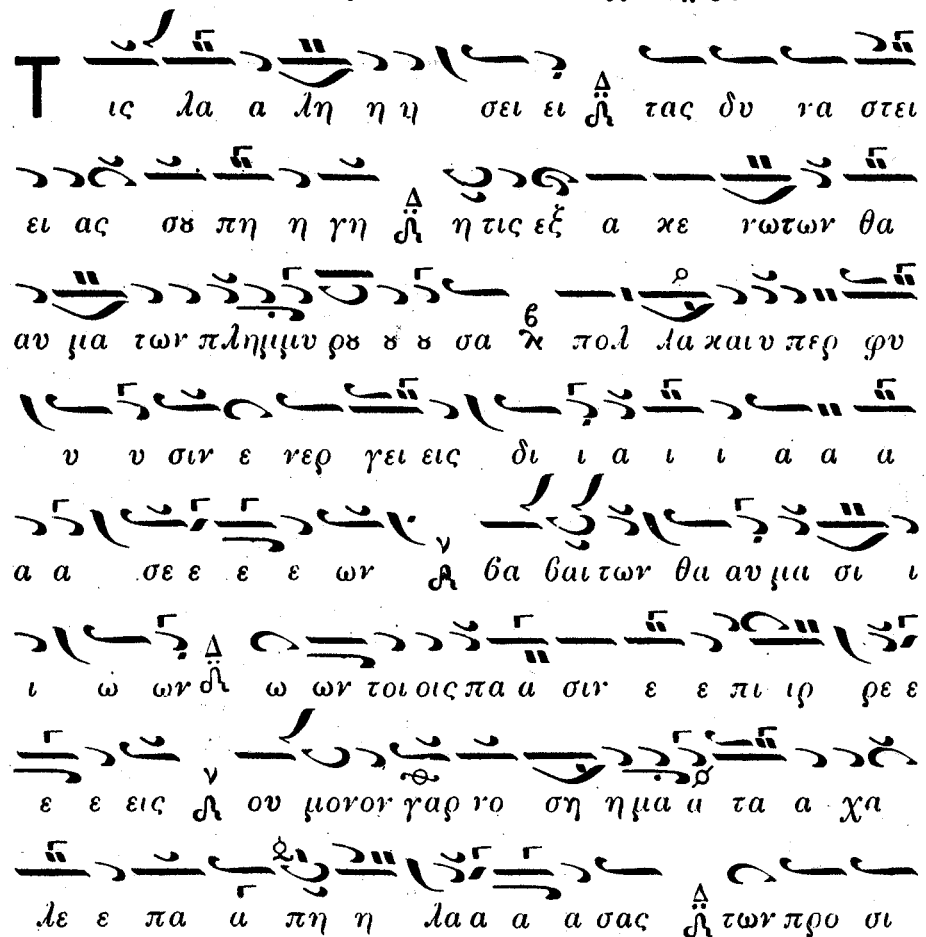 Τ ις λα α λη η η σει ει Δ τας δυ να στει
ει ας σȣ πη η γη Δ η τις εξ α κε νωτων θα
αυ μα των πλημμυ ρȣ ȣ ȣ σα πολ λα και υ περ φυ
υ υ σιν ε νερ γει εις δι ι α ι ι α α α
α α σε ε ε ε ων ν βα βαι των θα αυ μα σι ι
ι ω ων Δ ω ων τοι οις πα α σιν ε ε πι ιρ ρε ε
ε ε εις ν ου μονον γαρ νο ση η μα α τα α χα
λε ε πα α πη η λα α α α σας Δ των προ σι